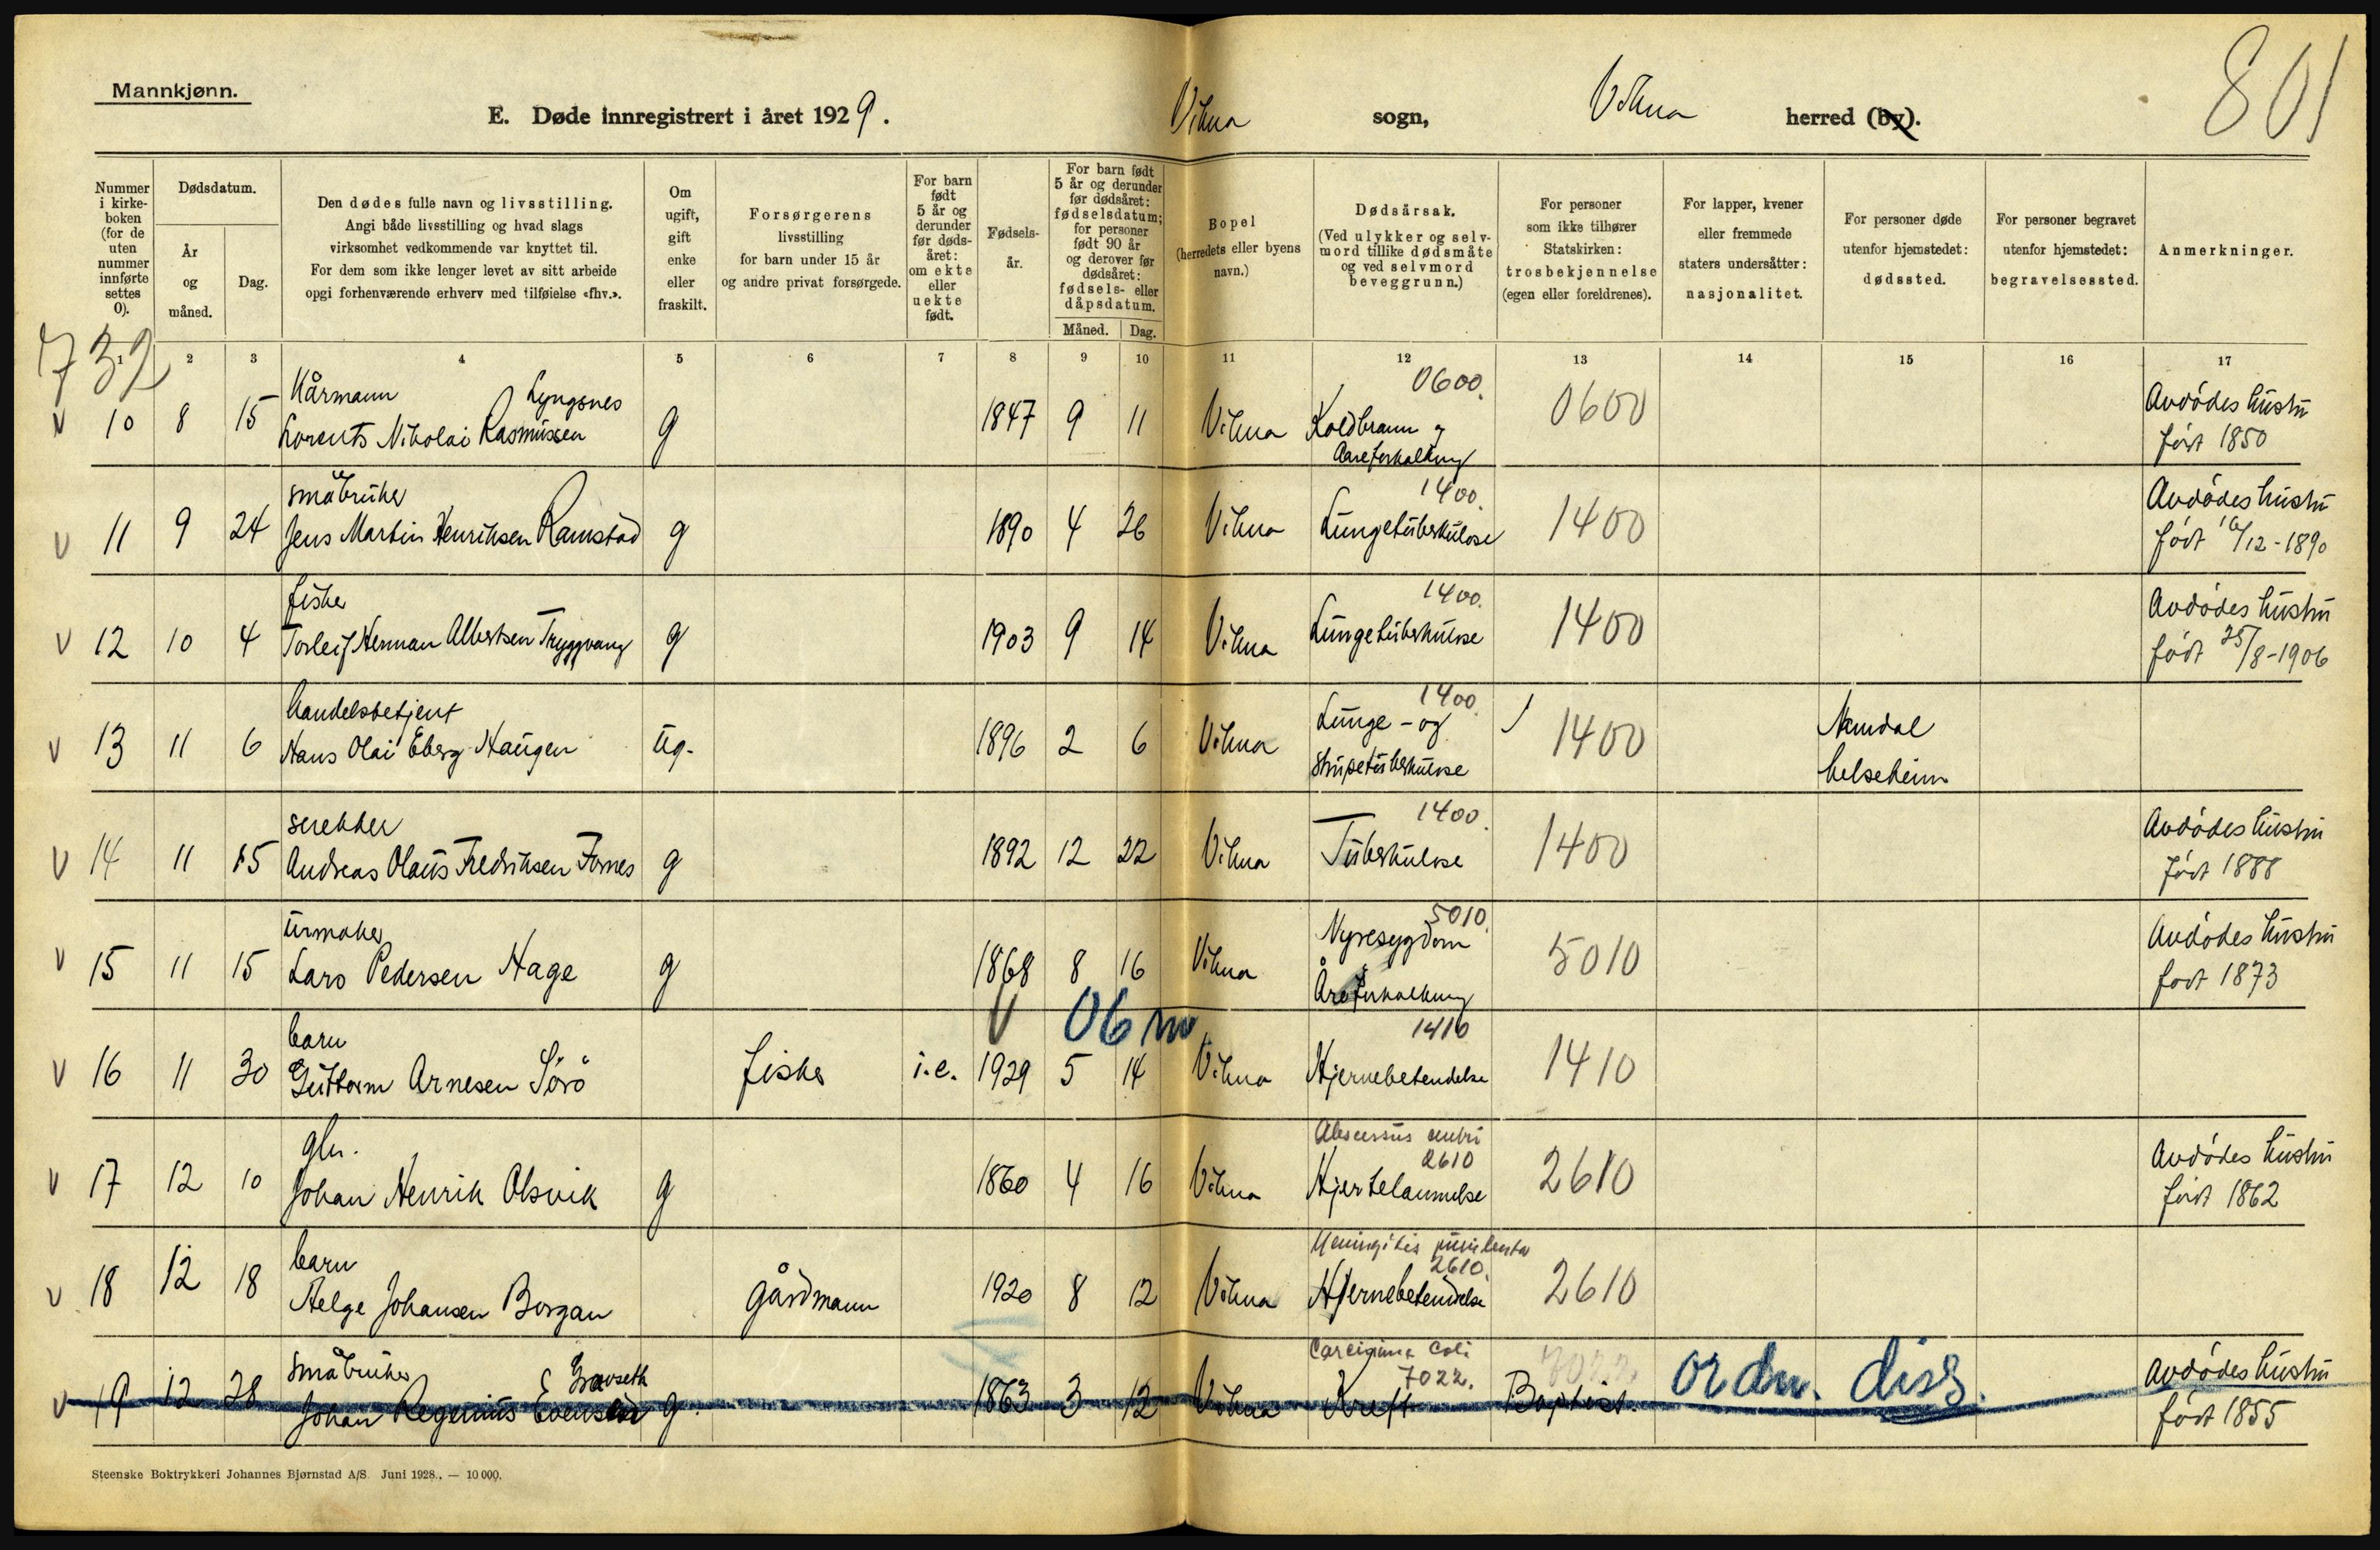 Mannkjønn.
801
E. Døde innregistrert i året 1929. Vikna sogn, Vikna herred (by).
Nummer i kirke-boken (for de uten nummer innførte settes 0).
Dødsdatum.
År og måned.
Dag.
Den dødes fulle navn og livsstilling.
Angi både livsstilling og hvad slags
virksomhet vedkommende var knyttet til.
For dem som ikke lenger levet av sitt arbeide
opgi forhenværende erhverv med tilføielse «fhv.».
Om ugift, gift enke eller fraskilt.
Forsørgerens
livsstilling
for barn under 15 år
og andre privat forsørgede.
For barn født 5 år og derunder før døds-året: om ekte eller uekte født.
Fødsels-år.
For barn født 5 år og derunder før dødsåret: fødselsdatum; for personer født 90 år og derover før dødsåret: fødsels- eller dåpsdatum.
Måned. Dag.
Bopel
(herredets eller byens
navn.)
Dødsårsak.
(Ved ulykker og selv-
mord tillike dødsmåte
og ved selvmord
beveggrunn.)
For personer
som ikke tilhører
Statskirken:
trosbekjennelse
(egen eller foreldrenes).
For lapper, kvener
eller fremmede
staters undersåtter:
nasjonalitet.
For personer døde
utenfor hjemstedet:
dødssted.
For personer begravet
utenfor hjemstedet:
begravelsessted.
Anmerkninger.
732
1 2 3 4 5 6 7 8 9 10 11 12 13 14 15 16 17
Kårmann Lyngsnes 0600.
V 10 8 15 Lorents Nikolai Rasmussen g 1847 9 11 Vikna Koldbrann og 0600 Avdødes hustru
Aareforkalkning født 1850
småbruker 1400.
V 11 9 24 Jens Martin Henriksen Ramstad g 1890 4 26 Vikna Lungetuberkulose 1400 Avdødes hustru
født 16/12-1890
fisker 1400.
V 12 10 4 Torleif Herman Albertsen Tryggvang g 1903 9 14 Vikna Lungetuberkulose 1400 Avdødes hustru
født 25/8-1906
handelsbetjent 1400.
V 13 11 6 Hans Olai Eberg Haugen ug. 1896 2 6 Vikna Lunge- og 1400 Namdal
strupetuberkulose helseheim
1400.
V 14 11 15 Andreas Olaus Fredriksen Fornes g 1892 12 22 Vikna Tuberkulose 1400 Avdødes hustru
født 1888
urmaker 5010.
V 15 11 15 Lars Pedersen Hage g 1868 8 16 Vikna Nyresygdom 5010 Avdødes hustru
Åreforkalkning født 1873
V 06 m
barn 1410
V 16 11 30 Guttorm Arnesen Sørø fisker i.e. 1929 5 14 Vikna Hjernebetendelse 1410
Abscessus
2610
V 17 12 10 Johan Henrik Olsvik g 1860 4 16 Vikna Hjertelammelse 2610 Avdødes hustru
født 1862
barn Meningitis purulenta
2610.
V 18 12 18 Helge Johansen Borgan gårdmann 1920 8 12 Vikna Hjernebetendelse 2610
småbruker Carcinoma coli
7022. 7022
V 19 12 28 Johan Reginius Evensen g. 1863 3 12 Vikna Kreft Baptist. ordn. diss. Avdødes hustru
født 1855
Steenske Boktrykkeri Johannes Bjørnstad A/S. Juni 1928. — 10 000.